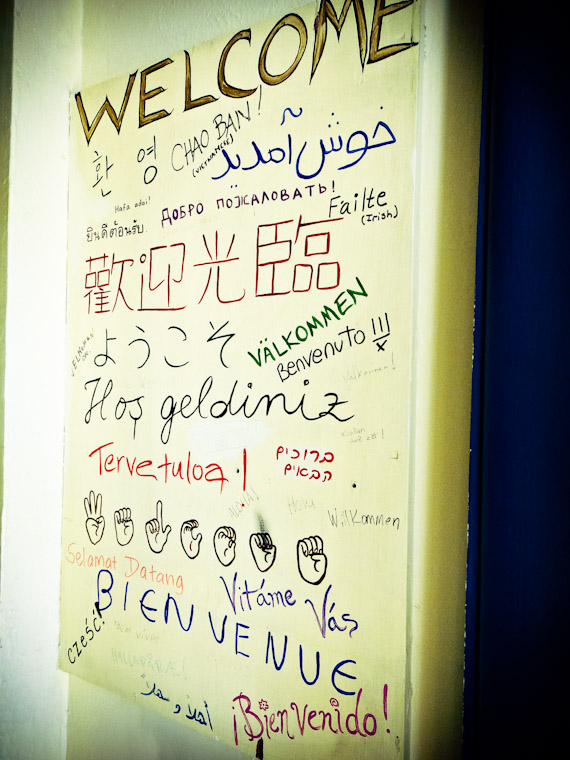 WELCOME
환 영
CHAO BAN!
(VIETNAMESE)
خوش آمدید
Hafa adai!
ДОБРО ПОЖАЛОВАТЬ!
Failte
(Irish)
ยินดีต้อนรับ
歡迎光臨
ようこそ
VÄLKOMMEN
Benvenuto
Hoş geldiniz
Tervetuloa!
ברוכים
הבאים
Willkommen
Selamat Datang
Vitáme Vás
BIENVENUE
CZEŚĆ!
أهلاً و سهلاً
¡Bienvenido!